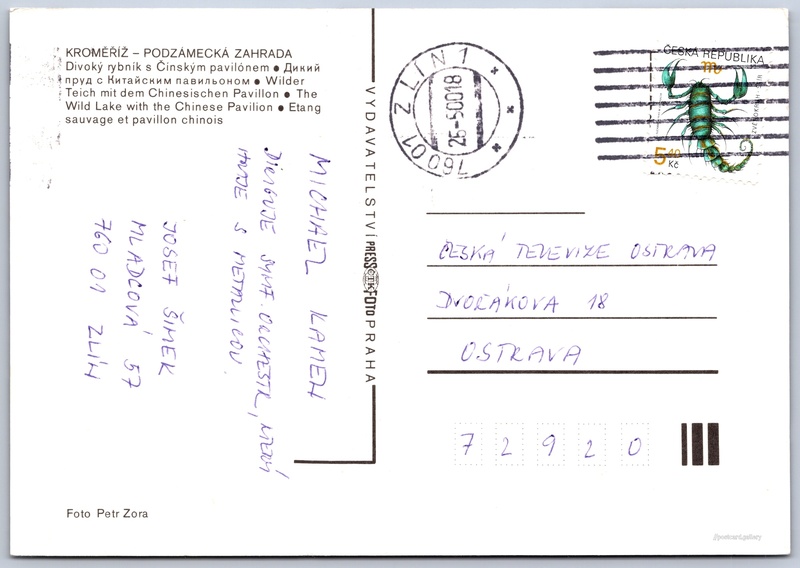 KROMĚŘÍŽ – PODZÁMECKÁ ZAHRADA
Divoký rybník s Čínským pavilónem ● Дикий
пруд с Китайским павильоном ● Wilder
Teich mit dem Chinesischen Pavillon ● The
Wild Lake with the Chinese Pavilion ● Etang
sauvage et pavillon chinois
VYDAVATELSTVÍ PRESSFOTO PRAHA
760 01 ZLÍN 1
ČESKÁ REPUBLIKA
5,40
Kč
MICHAEL KAMEN
DIRIGUJE SYMF. ORCHESTR, KTERÝ
HRAJE S METALICOU.
JOSEF ŠIMEK
MLADCOVÁ 57
760 01 ZLÍN
ČESKÁ TELEVIZE OSTRAVA
DVOŘÁKOVA 18
OSTRAVA
7 2 9 2 0
Foto Petr Zora